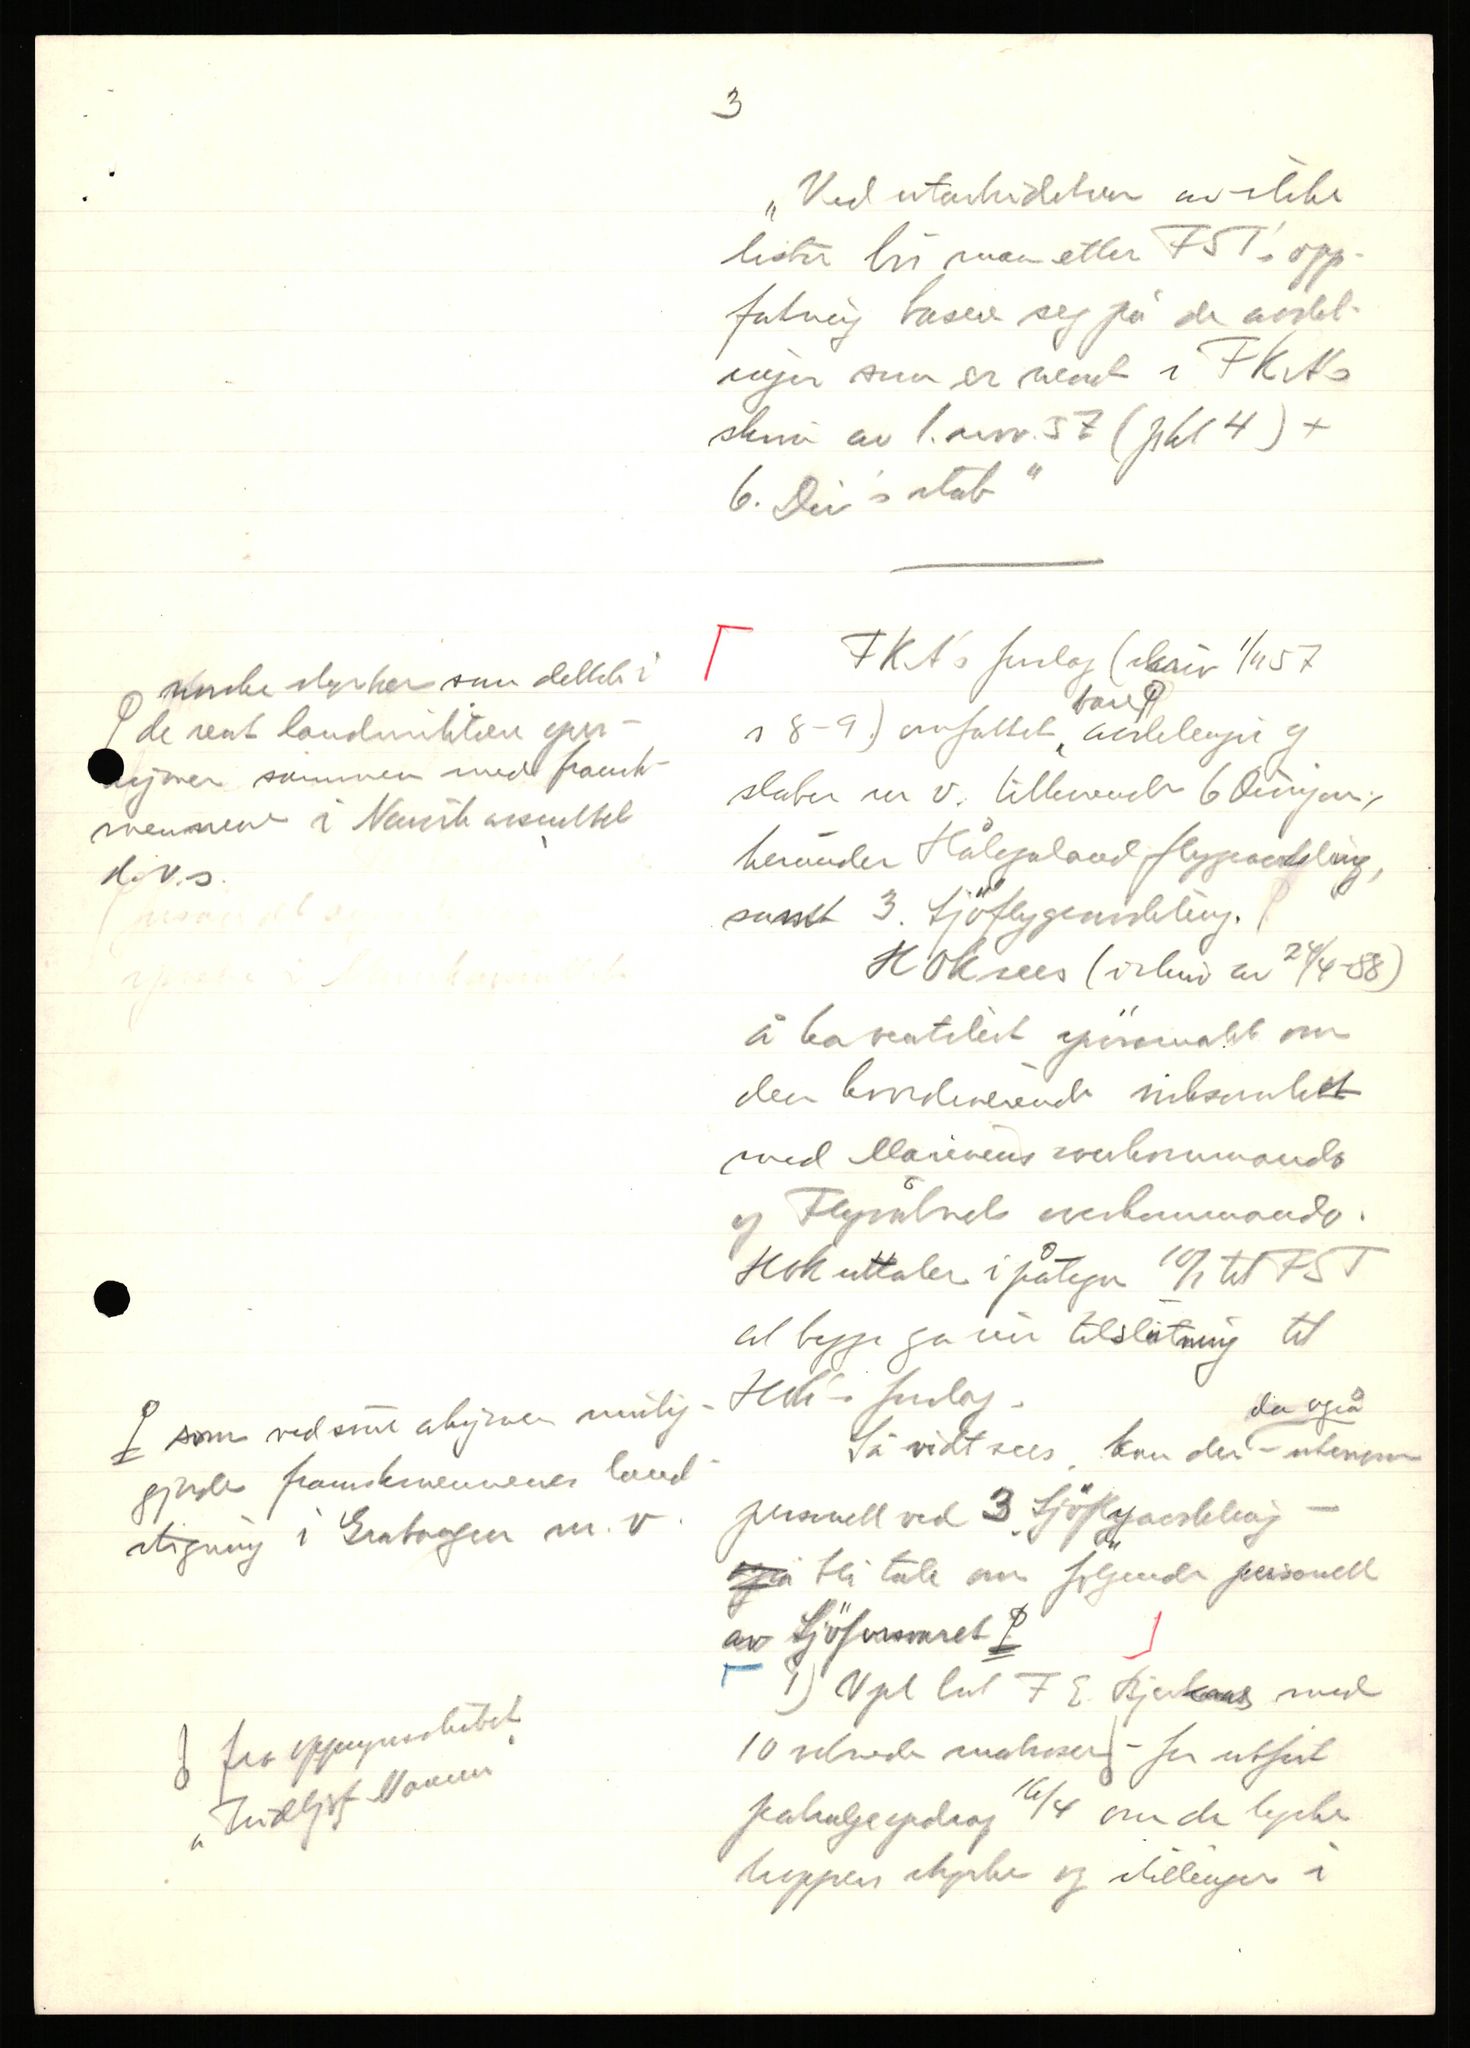 3
"Ved utarbeidelsen av slike
lister bör man etter FST's opp-
fatning basere seg på de avdel-
inger som er nevnt i FKA's
skriv av 1. nov. 57 (pkt 4) +
6. Div's stab"
FKA's forslag (skriv 1/11 57
s 8-9) omfattet bare avdelinger og
staber m v. tilhørende 6 Divisjon,
herunder Hålogaland flygeavdeling,
samt 3. Sjöflygeavdeling.
HOK sees (i skriv av 24/4-58)
å ha ventilert spörsmålet om
den koordinerende virksomhet
med Marinens overkommando
og Flyvåpnets overkommando.
HOK uttaler i påtegn 10/1 til FST
at begge ga sin tilslutning til
HOK's forslag.
Så vidt sees, kan der - utenom
da også
personell ved 3. Sjöflyavdeling -
bli tale om fölgende personell
av Sjöforsvaret
1) Vpl lnt F E. med
10 matroser - for utfört
patruljeoppdrag 16/4 om de tyske
troppers styrke og stillinger i
norske styrker som deltok i
de rent landmilitære oper-
asjoner sammen med fransk-
mennene i Narvik avsnittet
d.v.s.
som ved sine aksjoner mulig-
gjorde franskmennenes land-
stigning i Gratangen m. v.
fra oppsynsskibet
"Fridtjof Nansen"